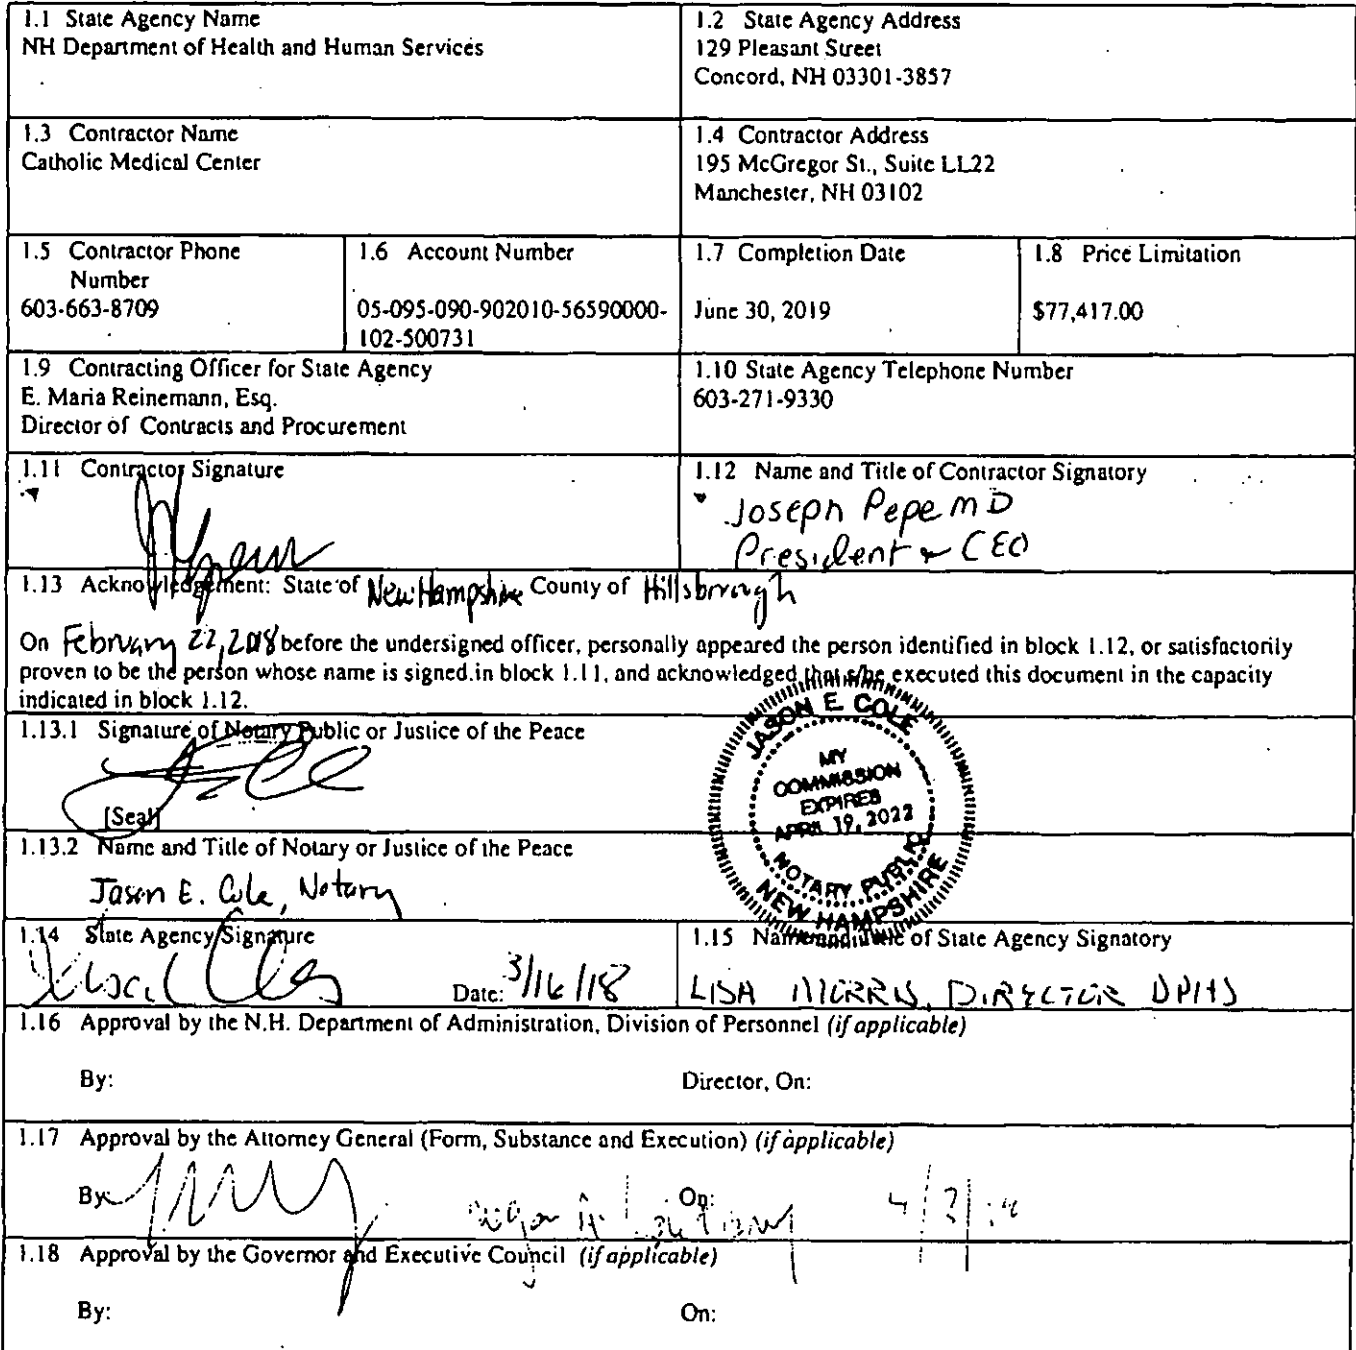 1.1 State Agency Name
NH Department of Health and Human Services
1.2 State Agency Address
129 Pleasant Street
Concord, NH 03301-3857
1.3 Contractor Name
Catholic Medical Center
1.4 Contractor Address
195 McGregor St., Suite LL22
Manchester, NH 03102
1.5 Contractor Phone
Number
603-663-8709
1.6 Account Number
05-095-090-902010-56590000-
102-500731
1.7 Completion Date
June 30, 2019
1.8 Price Limitation
$77,417.00
1.9 Contracting Officer for State Agency
E. Maria Reinemann, Esq.
Director of Contracts and Procurement
1.10 State Agency Telephone Number
603-271-9330
1.11 Contractor Signature
1.12 Name and Title of Contractor Signatory
Joseph Pepe MD
President & CEO
1.13 Acknowledgement: State of New Hampshire County of Hillsborough
On February 22, 2018 before the undersigned officer, personally appeared the person identified in block 1.12, or satisfactorily
proven to be the person whose name is signed in block 1.11, and acknowledged that s/he executed this document in the capacity
indicated in block 1.12.
1.13.1 Signature of Notary Public or Justice of the Peace
[Seal]
JASON E COLE
MY
COMMISSION
EXPIRES
APRIL 19, 2022
NOTARY PUBLIC
NEW HAMPSHIRE
1.13.2 Name and Title of Notary or Justice of the Peace
Jason E. Cole, Notary
1.14 State Agency Signature
Date: 3/16/18
1.15 Name and Title of State Agency Signatory
LISA MORRIS, DIRECTOR DPHS
1.16 Approval by the N.H. Department of Administration, Division of Personnel (if applicable)
By: Director, On:
1.17 Approval by the Attorney General (Form, Substance and Execution) (if applicable)
By: On:
1.18 Approval by the Governor and Executive Council (if applicable)
By: On: